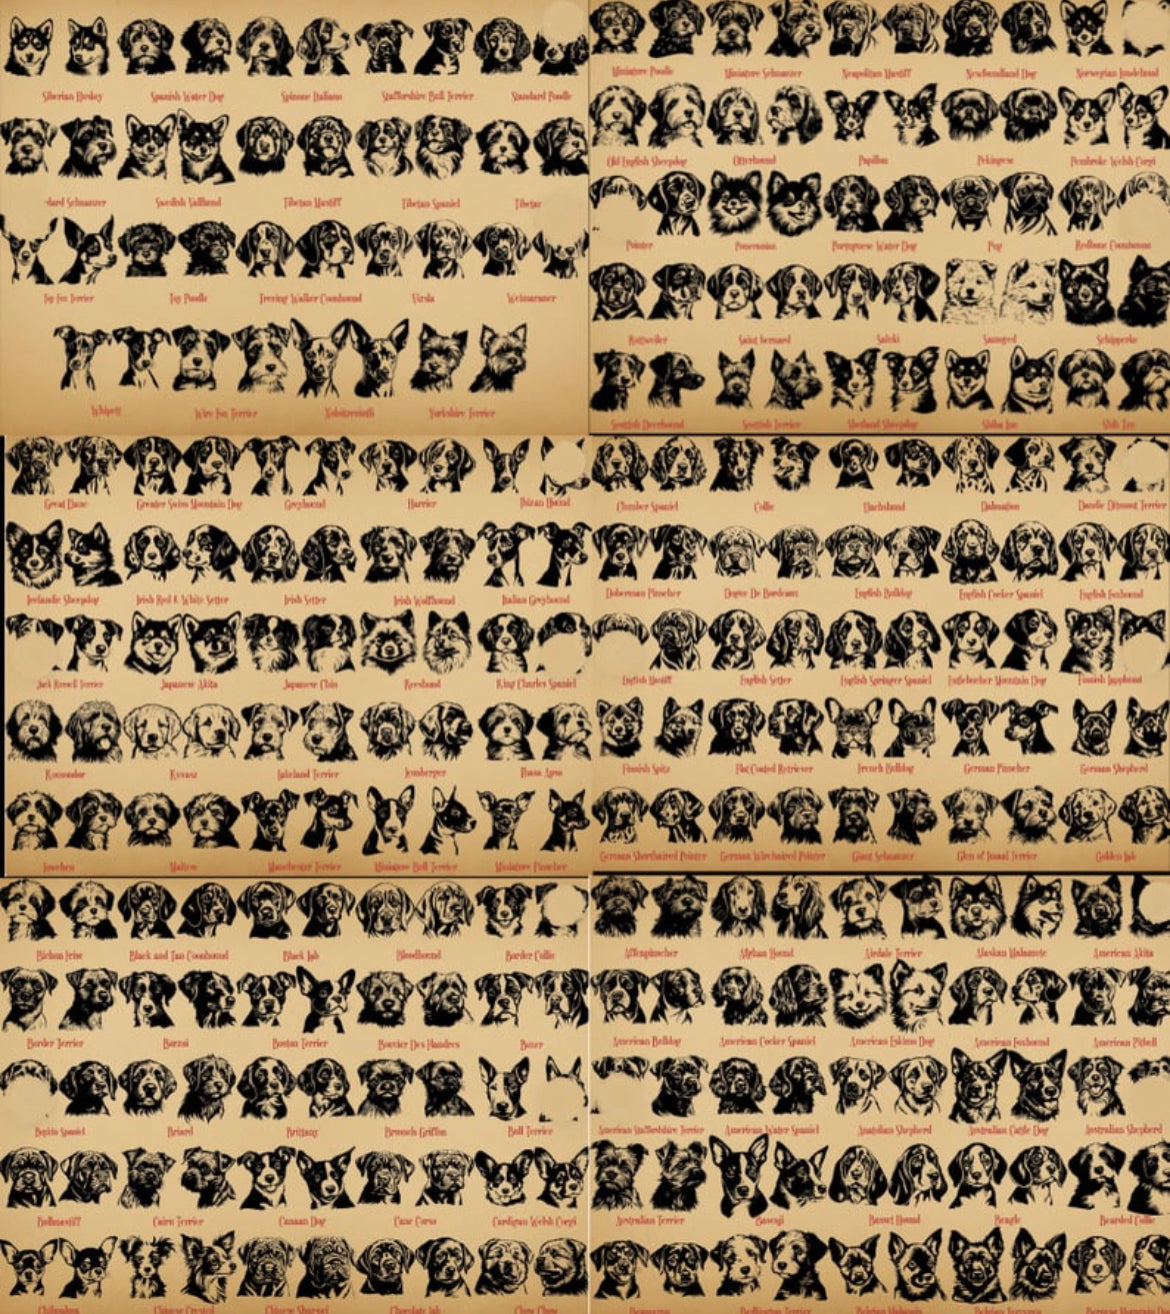 Siberian Husky Spanish Water Dog Spinone Italiano Staffordshire Bull Terrier Standard Poodle
-dard Schnauzer Swedish Vallhund Tibetan Mastiff Tibetan Spaniel Tibetan
Toy Fox Terrier Toy Poodle Treeing Walker Coonhound Vizsla Weimaraner
Whipett Wire Fox Terrier Yorkshire Terrier
Miniature Poodle Miniature Schnauzer Neapolitan Mastiff Newfoundland Dog Norwegian Lundehund
Old English Sheepdog Otterhound Papillon Pekingese Pembroke Welsh Corgi
Pointer Pomeranian Portuguese Water Dog Pug Redbone Coonhound
Rottweiler Saint bernard Saluki Samoyed Schipperke
Scottish Deerhound Scottish Terrier Shetland Sheepdog Shiba Inu Shih Tzu
Great Dane Greater Swiss Mountain Dog Greyhound Harrier Ibizan Hound
Icelandic Sheepdog Irish Red & White Setter Irish Setter Irish Wolfhound Italian Greyhound
Jack Russell Terrier Japanese Akita Japanese Chin Keeshond King Charles Spaniel
Komondor Kuvasz Lakeland Terrier Leonberger Lhasa Apso
Lowchen Maltese Manchester Terrier Miniature Bull Terrier Miniature Pinscher
Clumber Spaniel Collie Dachshund Dalmation Dandie Dinmont Terrier
Doberman Pinscher Dogue De Bordeaux English Bulldog English Cocker Spaniel English Foxhound
English Mastiff English Setter English Springer Spaniel Entlebucher Mountain Dog Finnish Lapphund
Finnish Spitz Flat Coated Retriever French Bulldog German Pinscher German Shepherd
German Shorthaired Pointer German Wirehaired Pointer Giant Schnauzer Glen of Imaal Terrier Golden lab
Bichon Frise Black and Tan Coonhound Black lab Bloodhound Border Collie
Border Terrier Borzoi Boston Terrier Bouvier Des Flandres Boxer
Boykin Spaniel Briard Brittany Brussels Griffon Bull Terrier
Bullmastiff Cairn Terrier Canaan Dog Cane Corso Cardigan Welsh Corgi
Chihuahua Chinese Crested Chinese Sharpei Chocolate lab Chow Chow
Affenpinscher Afghan Hound Airdale Terrier Alaskan Malamute American Akita
American Bulldog American Cocker Spaniel American Eskimo Dog American Foxhound American Pitbull
American Staffordshire Terrier American Water Spaniel Anatolian Shepherd Australian Cattle Dog Australian Shepherd
Australian Terrier Basenji Basset Hound Beagle Bearded Collie
Bedlington Terrier Belgian Malinois